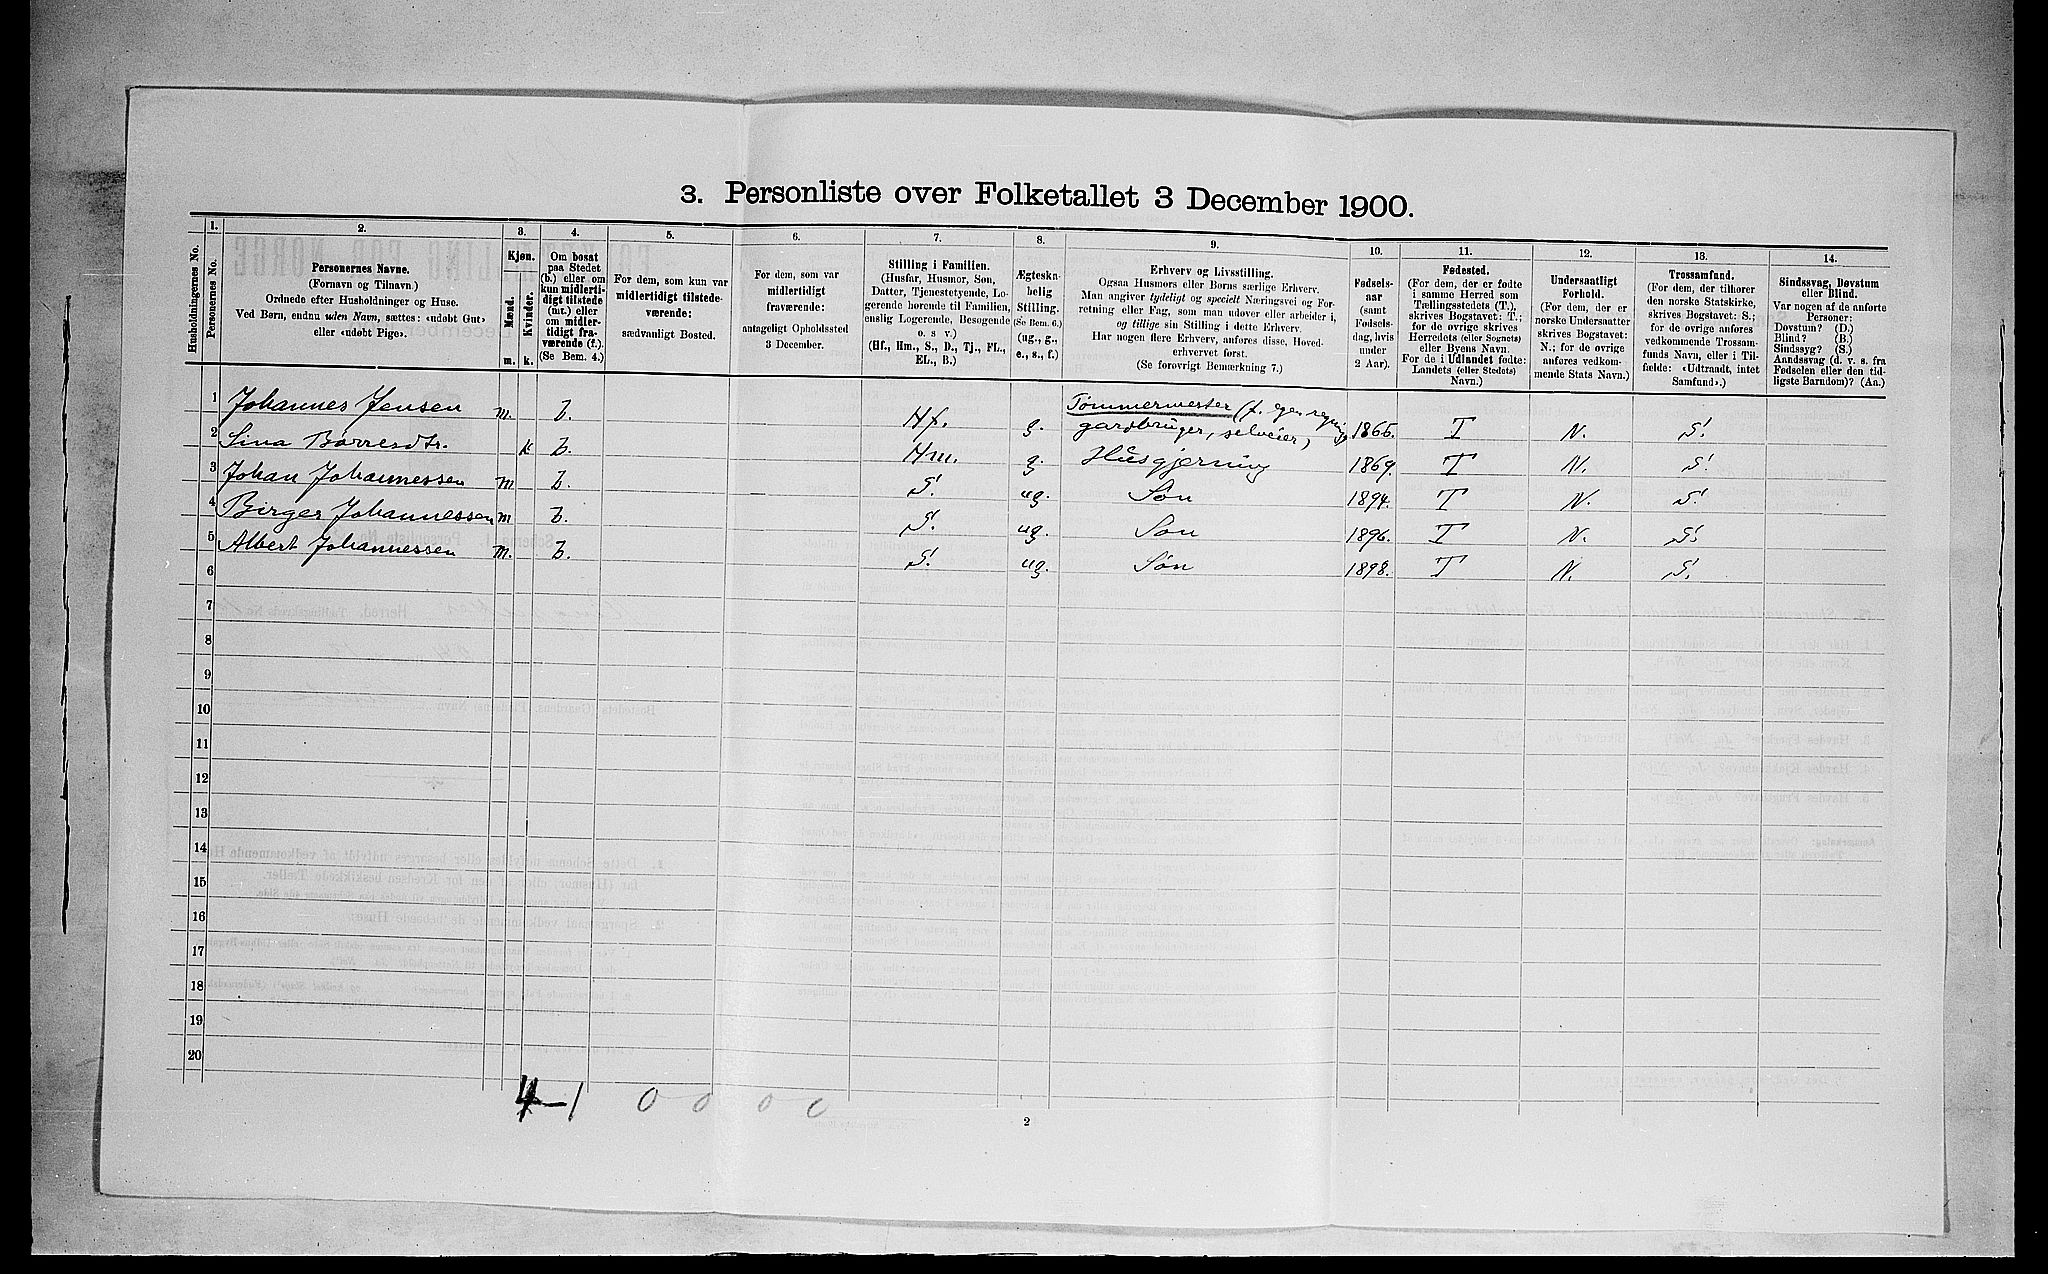 3. Personliste over Folketallet 3 December 1900.
1. 2. 3. 4. 5. 6. 7. 8. 9. 10. 11. 12. 13. 14.
Husholdningernes No.
Personernes No.
Personernes Navne.
(Fornavn og Tilnavn.)
Ordnede efter Husholdninger og Huse.
Ved Børn, endnu uden Navn, sættes: «udøbt Gut»
eller «udøbt Pige».
Kjøn.
Mænd.
Kvinder.
m. k.
Om bosat
paa Stedet
(b.) eller om
kun midlerti-
digt tilstede
(mt.) eller
om midler-
tidigt fra-
værende (f.).
(Se Bem. 4.)
For dem, som kun var
midlertidigt tilstede-
værende:
sædvanligt Bosted.
For dem, som var
midlertidigt
fraværende:
antageligt Opholdssted
3 December.
Stilling i Familien.
(Husfar, Husmor, Søn,
Datter, Tjenestetyende, Lo-
gerende hørende til Familien,
enslig Logerende, Besøgende
o. s v.)
(Hf., Hm., S., D., Tj., FL.,
EL., B.)
Ægteska-
belig
Stilling.
(Se Bem. 6.)
(ug., g.,
e., s., f.)
Erhverv og Livsstilling.
Ogsaa Husmors eller Børns særlige Erhverv.
Man angiver tydeligt og specielt Næringsvei og For-
retning eller Fag, som man udøver eller arbeider i,
og tillige sin Stilling i dette Erhverv.
Har nogen flere Erhverv, anføres disse, Hoved-
erhvervet først.
(Se forøvrigt Bemærkning 7.)
Fødsels-
aar
(samt
Fødsels-
dag, hvis
under
2 Aar).
Fødested.
(For dem, der er fødte
i samme Herred som
Tællingsstedets (T.),
skrives Bogstavet: T.;
for de øvrige skrives
Herredets (eller Sognets)
eller Byens Navn.
For de i Udlandet fødte:
Landets (eller Stedets)
Navn.)
Undersaatligt
Forhold.
(For dem, der er
norske Undersaatter
skrives Bogstavet:
N.; for de øvrige
anføres vedkom-
mende Stats Navn.)
Trossamfund.
(For dem, der tilhører
den norske Statskirke,
skrives Bogstavet: S.;
for de øvrige anføres
vedkommende Trossam-
funds Navn, eller i Til-
fælde: «Udtraadt, intet
Samfund».)
Sindssvag, Døvstum
eller Blind.
Var nogen af de anførte
Personer:
Døvstum? (D.)
Blind? (B.)
Sindssyg? (S.)
Aandssvag (d. v. s. fra
Fødselen eller den tid-
ligste Barndom)? (Aa.)
1 Johannes Jensen m. b. Hf. g. Tømmermester (f. egen regning)
gardbruger, selveier, 1865. T N. S.
2 Sina Børresdtr. k b. Hm. g. Husgjerning 1869. T N. S.
3 Johan Johannessen m b. S. ug. Søn 1894. T N. S.
4 Birger Johannessen m b. S. ug. Søn 1896. T N. S.
5 Albert Johannessen m. b. S. ug. Søn 1898. T N. S.
6
7
8
9
10
11
12
13
14
15
16
17
18
19
20
4-1 0 0 0 0
2